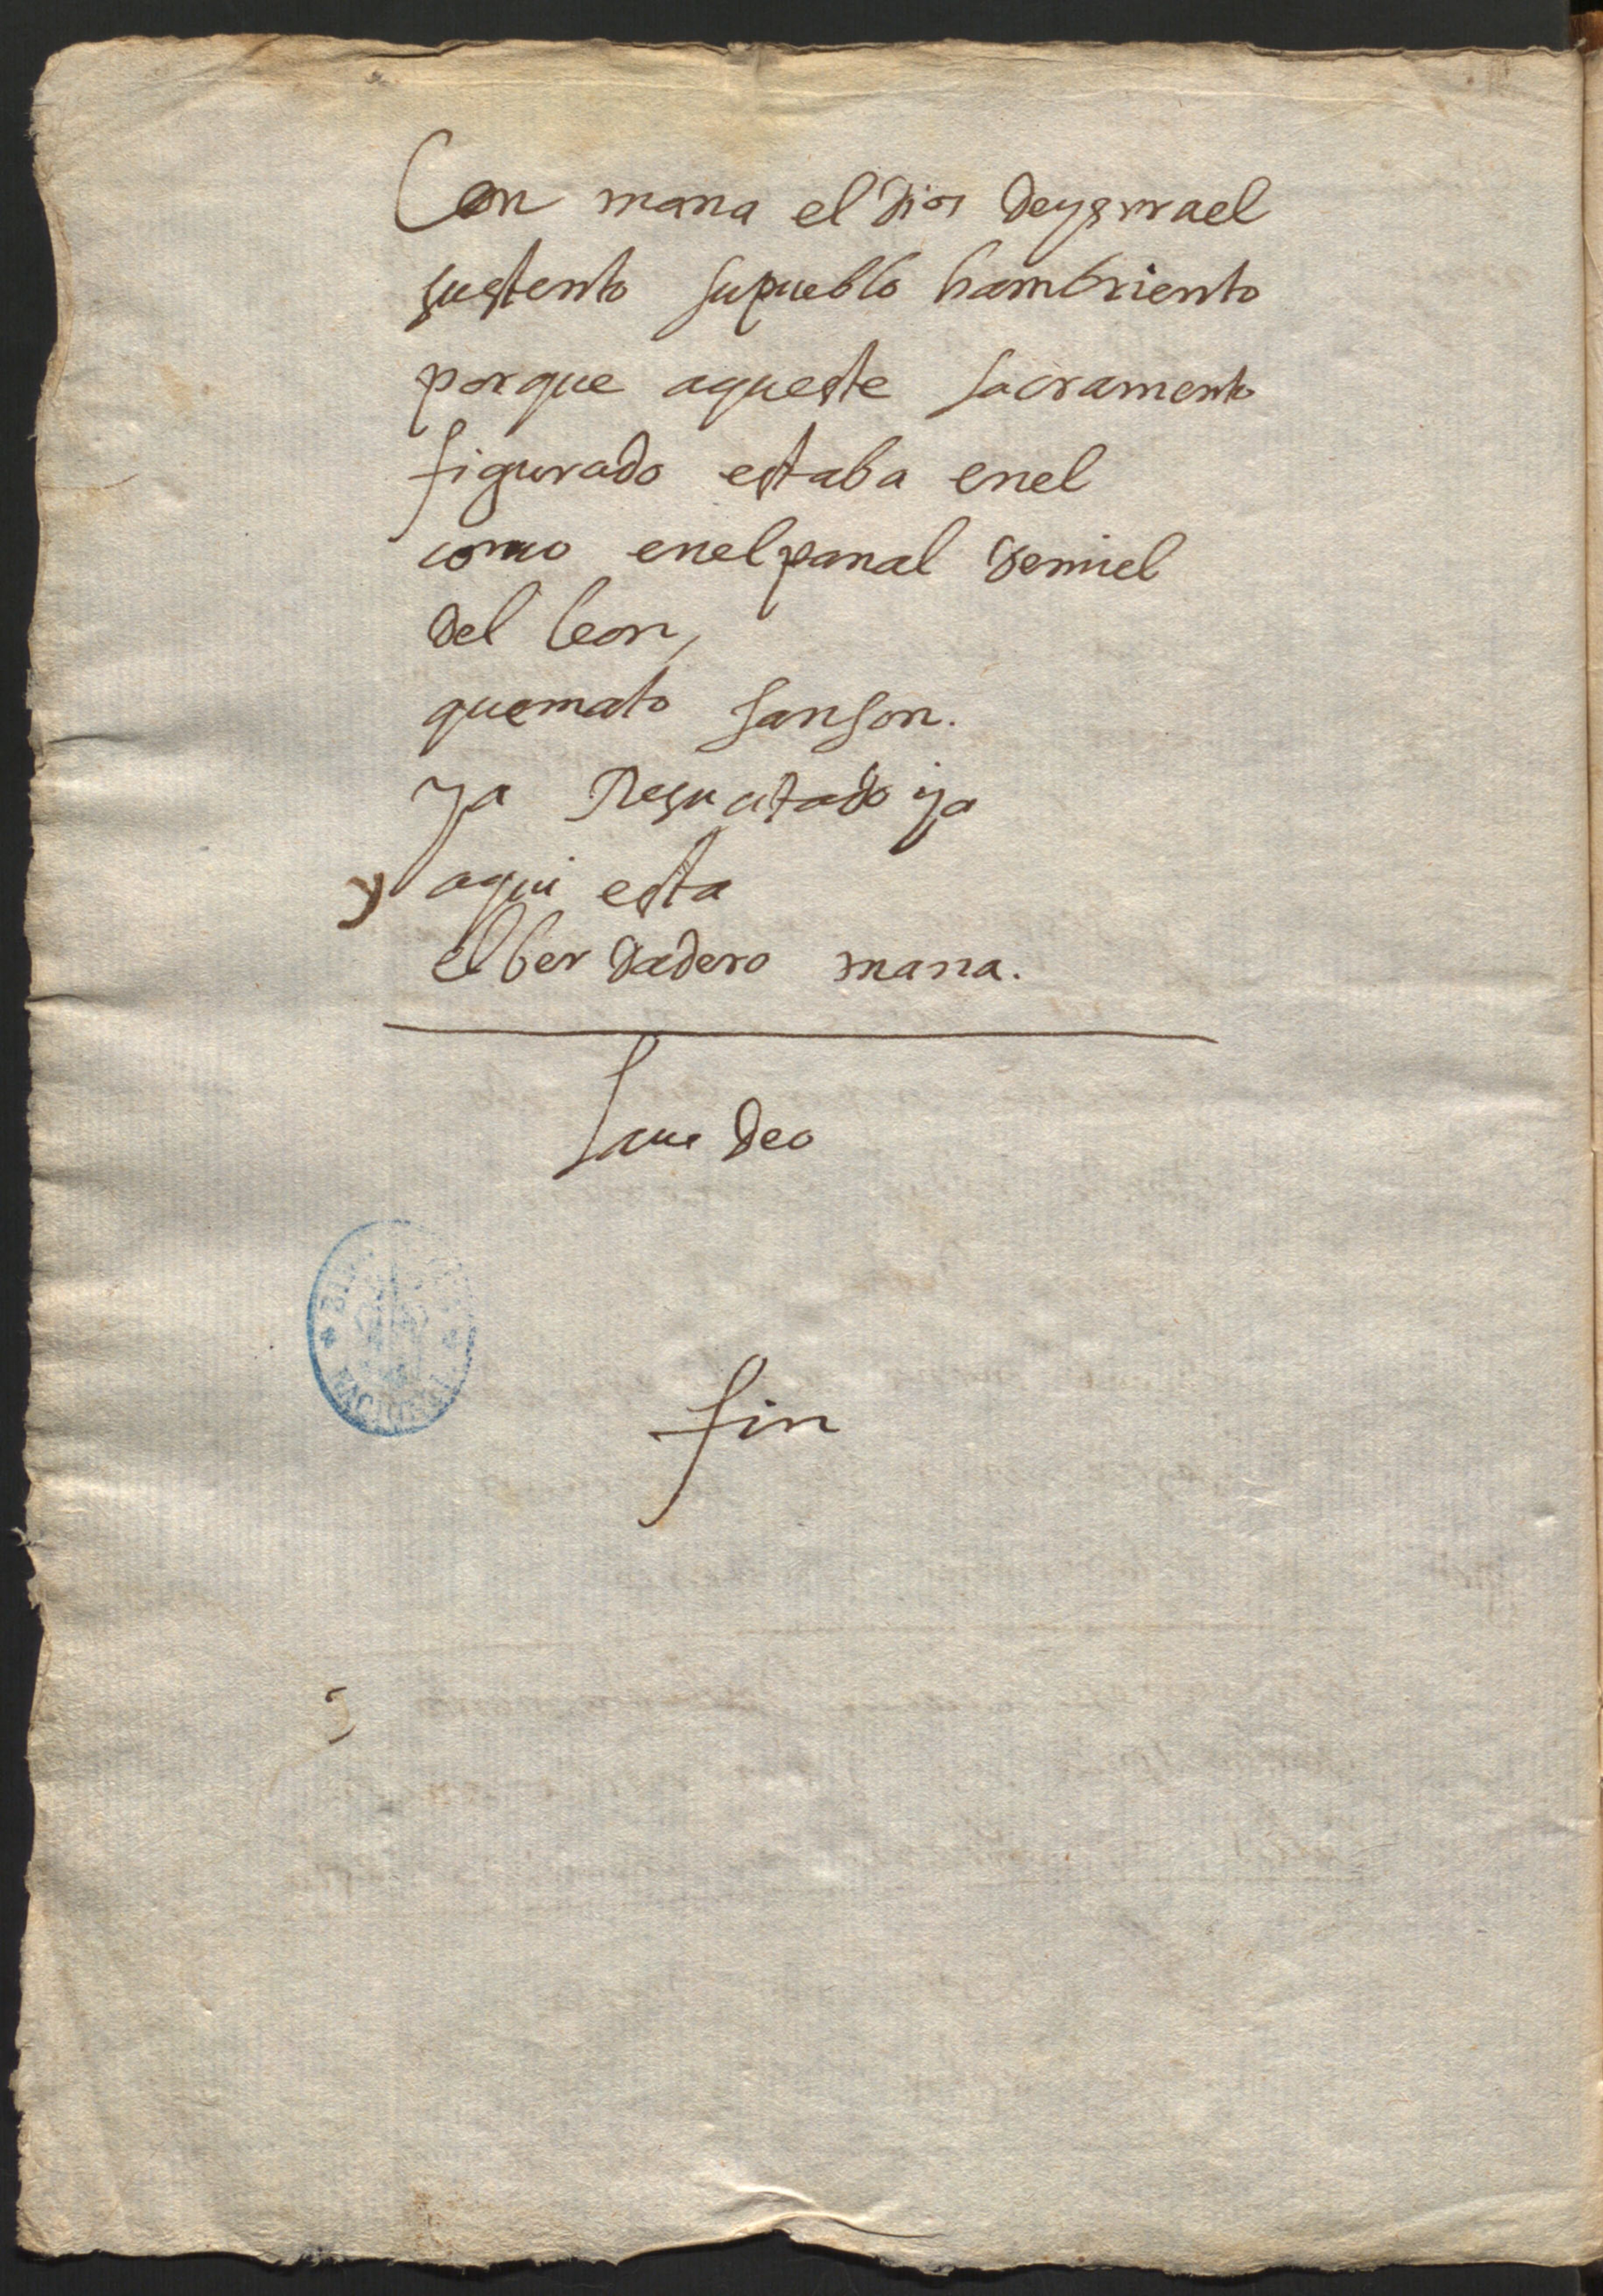 Con mana el dios deysrrael
sustento supueblo hambriento
porque aqueste sacramento
figurado estaba enel
como enelpanal demiel
del leon,
quemato sanson.
ya Resucitado ya
y aqui esta
elberdadero mana.
laus deo
fin
NACIONAL